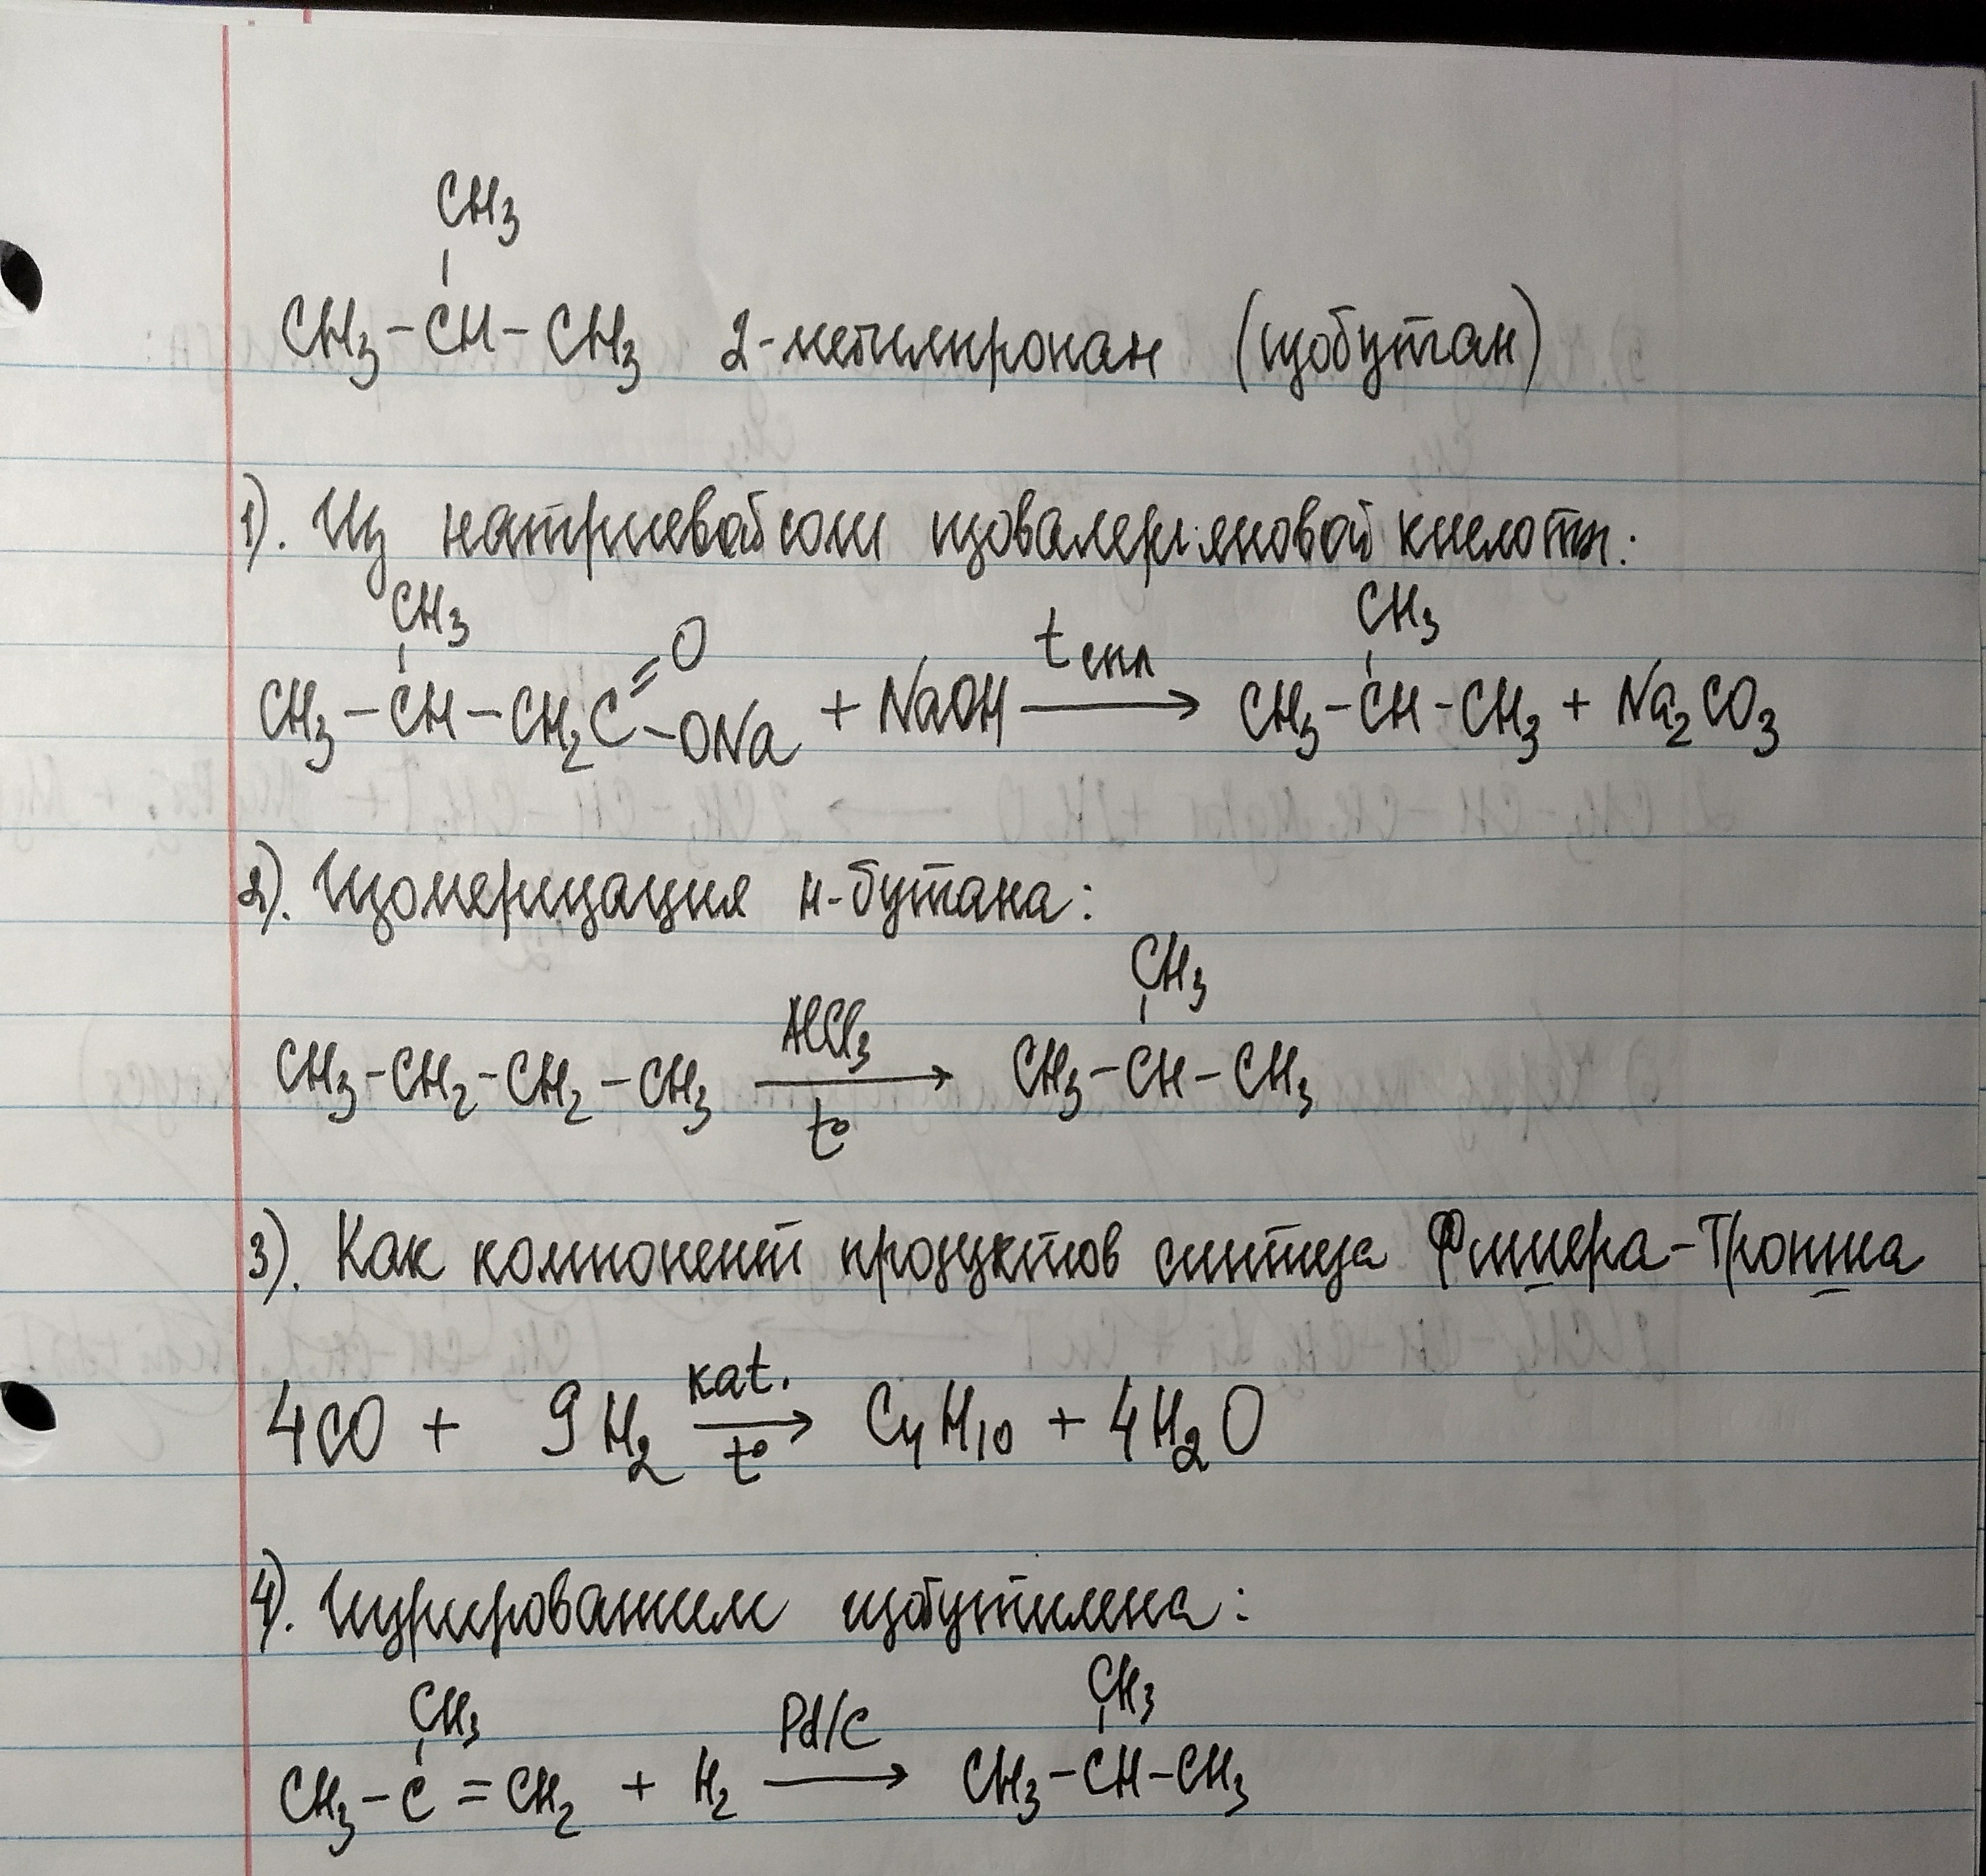 CH₃
CH₃-CH-CH₃ 2-метилпропан (изобутан)
1). Из натриевой соли изовалериановой кислоты:
CH₃ CH₃
CH₃-CH-CH₂C=O-ONa + NaOH t спл → CH₃-CH-CH₃ + Na₂CO₃
2). Изомеризация н-бутана:
CH₃
CH₃-CH₂-CH₂-CH₃ AlCl₃ t° → CH₃-CH-CH₃
3). Как компонент продуктов синтеза Фишера-Тропша
4CO + 9H₂ kat. t° → C₄H₁₀ + 4H₂O
4). Гидрированием изобутилена:
CH₃ CH₃
CH₃-C=CH₂ + H₂ Pd/C → CH₃-CH-CH₃